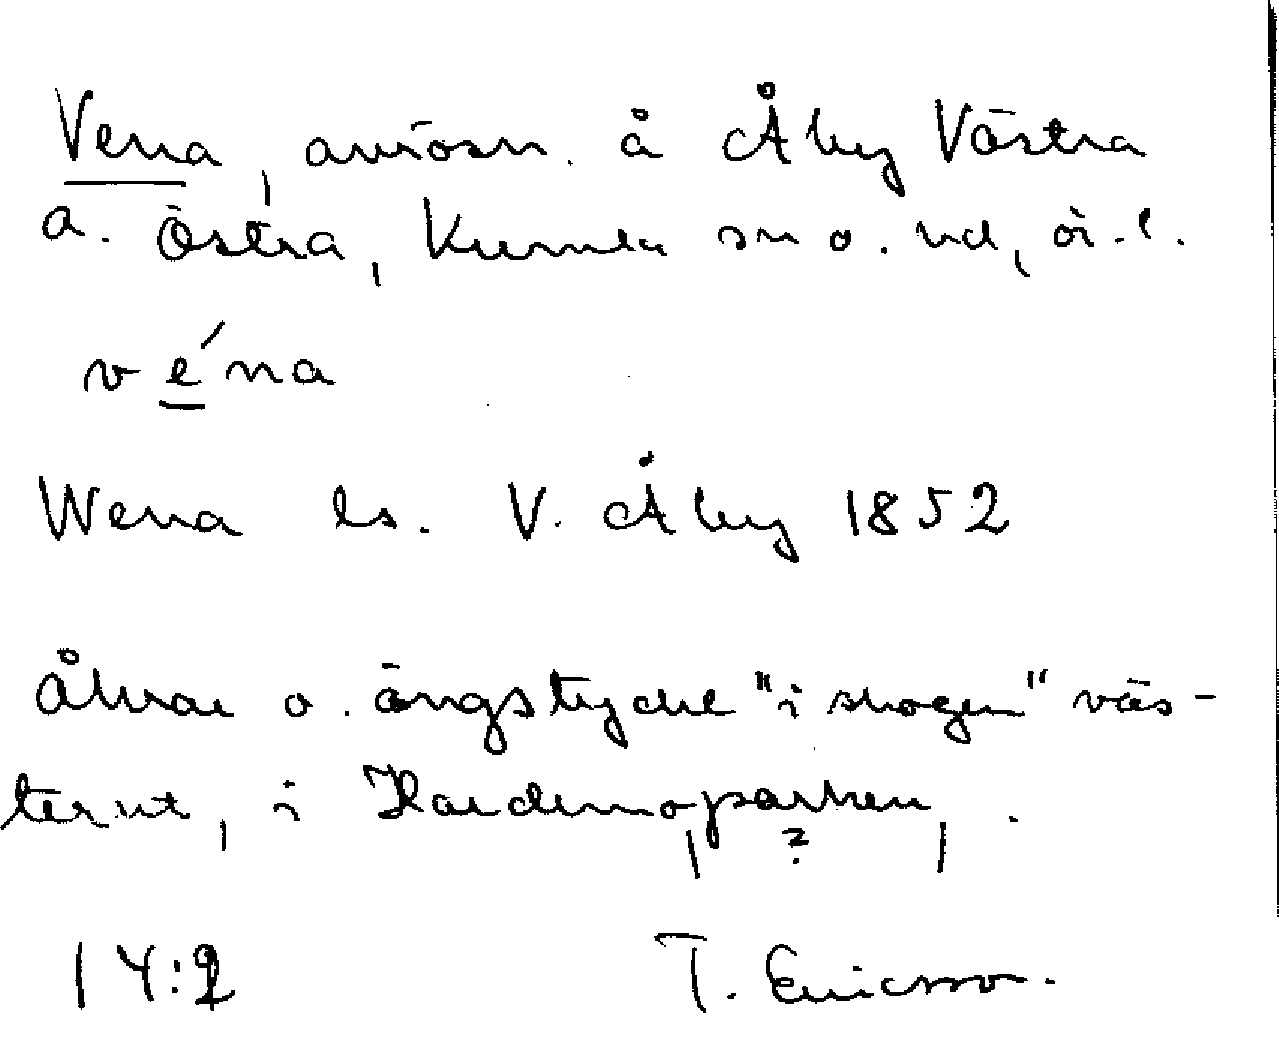 Vena, avrösn. å Åby Västra
o. Östra, Kumla sn o. hd, ör. l.
vé́na
Wena ls. V. Åby 1852
Åkrar o. ängstycke "i skogen" väs-
terut, i
14:2 T. Ericsson.